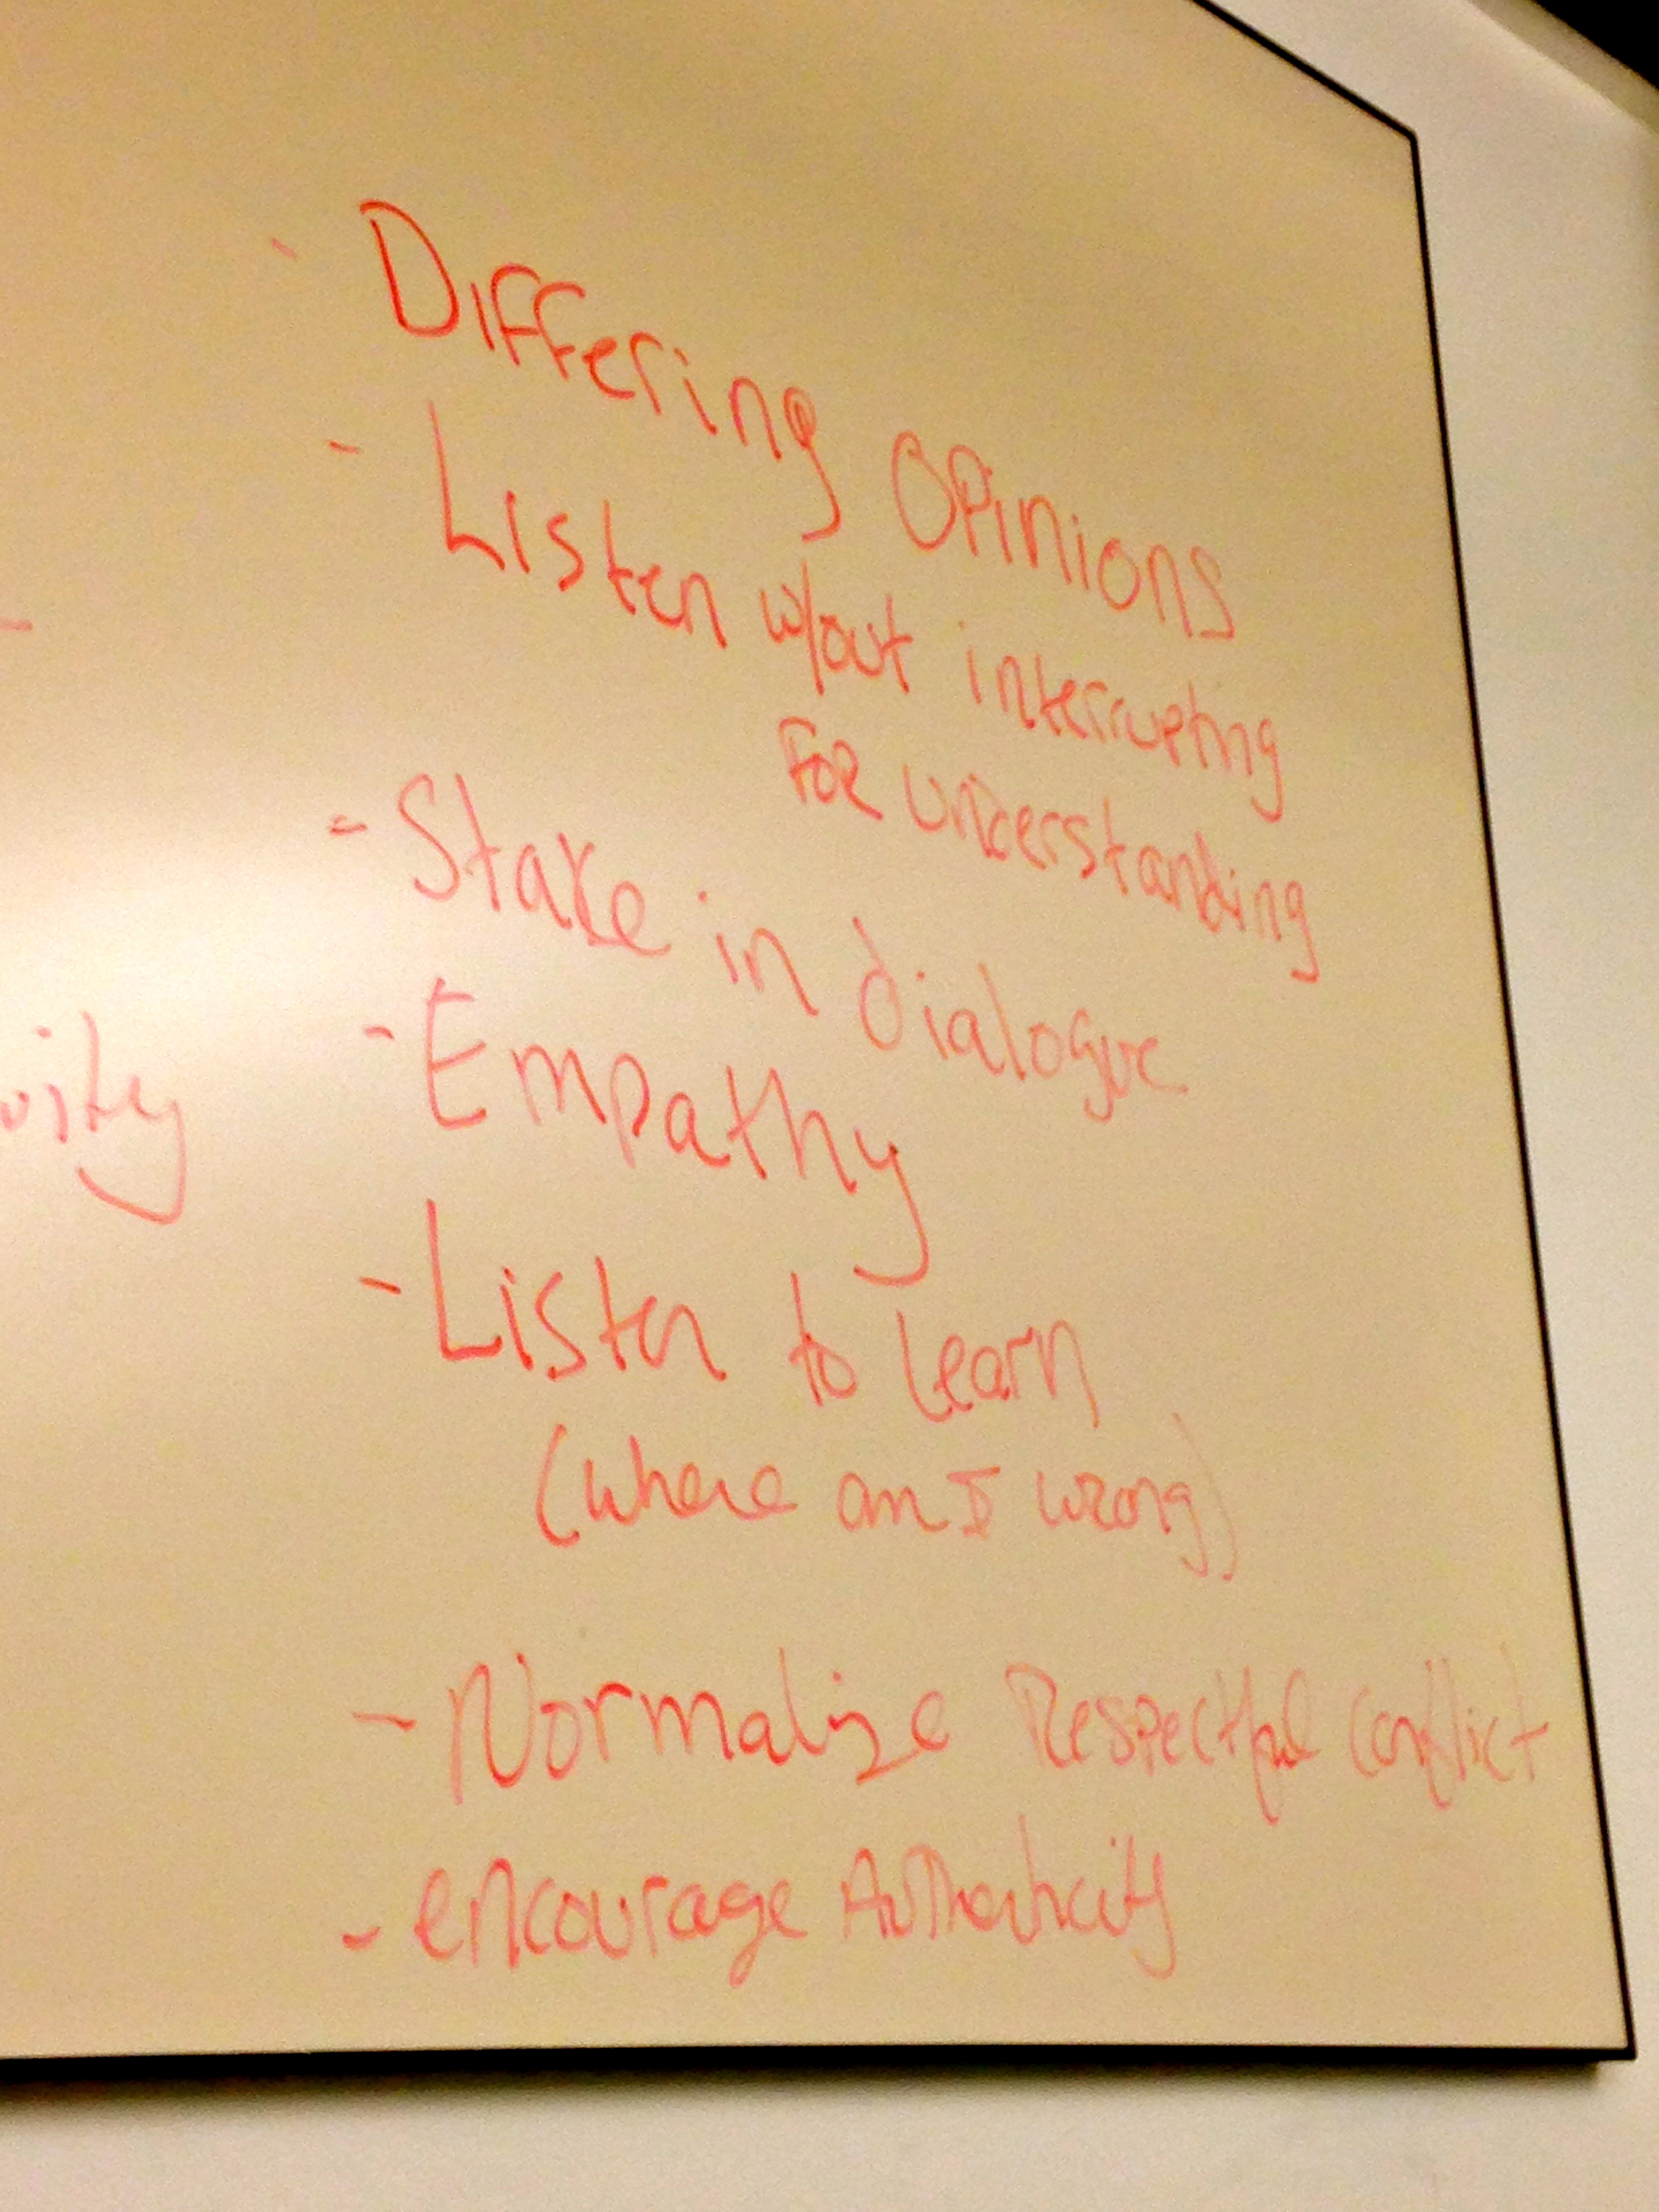 - Differing Opinions
- Listen w/out interrupting
For understanding
- Stake in dialogue
- Empathy
- Listen to learn
(where am I wrong)
- Normalize Respectful Conflict
- encourage Authenticity